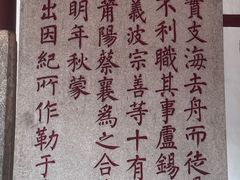 實支海去舟而徙
不利職其事盧錫
義波宗善等十有
莆陽蔡襄為之合
明年秋蒙
出因紀所作勒于